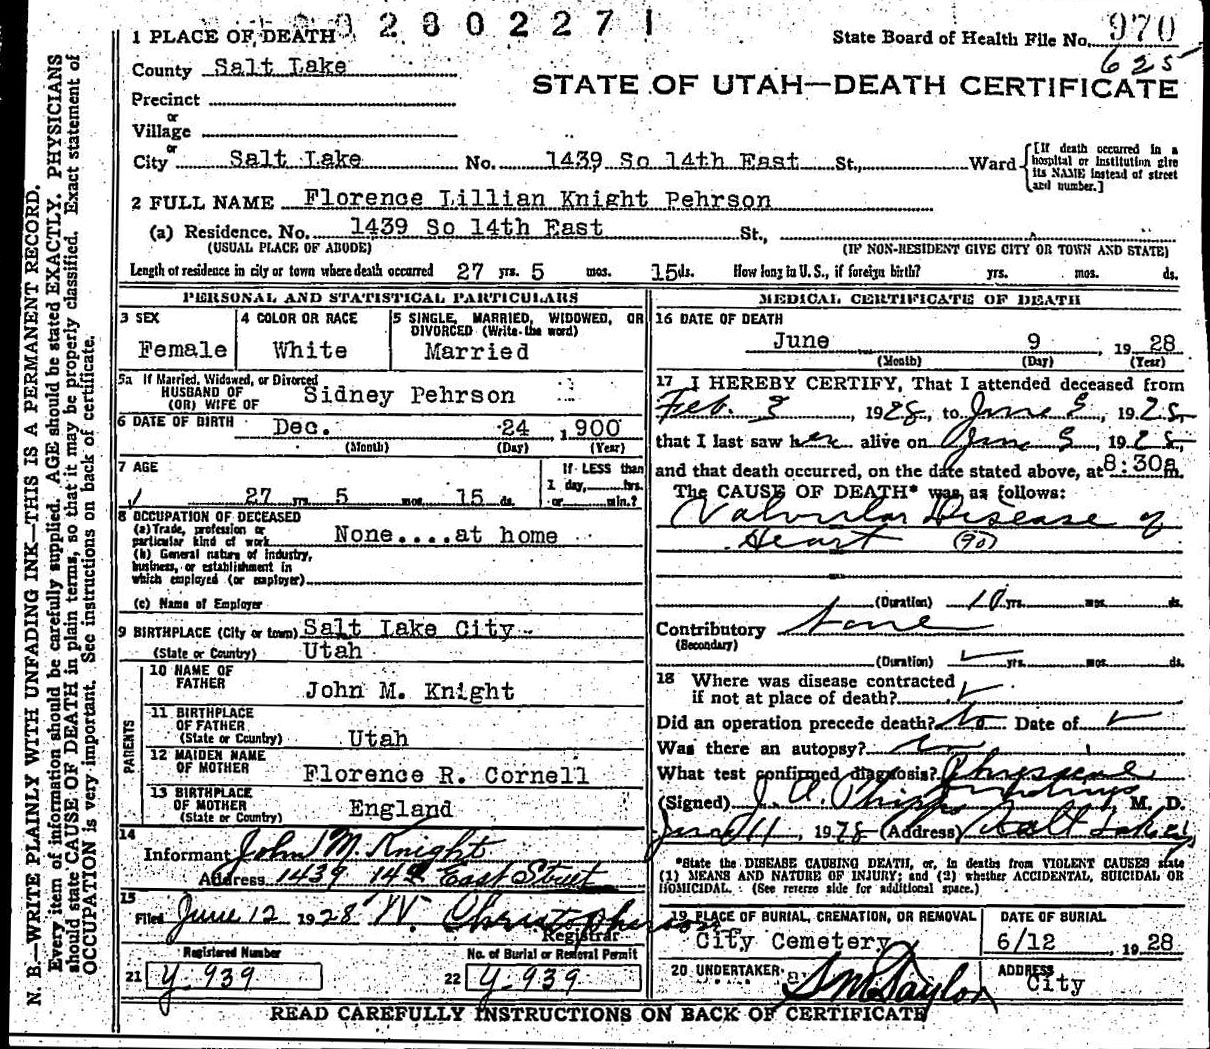 2802271
1 PLACE OF DEATH
State Board of Health File No. 970
625
County Salt Lake
STATE OF UTAH—DEATH CERTIFICATE
Precinct
or
Village
or
City Salt Lake No. 1439 So 14th East St., Ward
[If death occurred in a hospital or institution give its NAME instead of street and number.]
2 FULL NAME Florence Lillian Knight Pehrson
(a) Residence. No. 1439 So 14th East St.,
(USUAL PLACE OF ABODE) (IF NON-RESIDENT GIVE CITY OR TOWN AND STATE)
Length of residence in city or town where death occurred 27 yrs. 5 mos. 15 ds. How long in U. S., if foreign birth? yrs. mos. ds.
PERSONAL AND STATISTICAL PARTICULARS
3 SEX
Female
4 COLOR OR RACE
White
5 SINGLE, MARRIED, WIDOWED, OR DIVORCED (Write the word)
Married
5a If Married, Widowed, or Divorced
HUSBAND OF
(OR) WIFE OF Sidney Pehrson
6 DATE OF BIRTH Dec. 24, 1900
(Month) (Day) (Year)
7 AGE
27 yrs. 5 mos. 15 ds.
If LESS than
1 day, hrs.
or min.?
8 OCCUPATION OF DECEASED
(a) Trade, profession or
particular kind of work None....at home
(b) General nature of industry,
business, or establishment in
which employed (or employer)
(c) Name of Employer
9 BIRTHPLACE (City or town) Salt Lake City
(State or Country) Utah
PARENTS
10 NAME OF
FATHER John M. Knight
11 BIRTHPLACE
OF FATHER
(State or Country) Utah
12 MAIDEN NAME
OF MOTHER Florence R. Cornell
13 BIRTHPLACE
OF MOTHER
(State or Country) England
14
Informant John M. Knight
Address 1439 14th East Street
15
Filed June 12 1928 W. Christopherson
Registrar
Registered Number
21 y-939
No. of Burial or Removal Permit
22 y-939
MEDICAL CERTIFICATE OF DEATH
16 DATE OF DEATH
June 9, 1928
(Month) (Day) (Year)
17 I HEREBY CERTIFY, That I attended deceased from
Feb. 1928, to June, 1928,
that I last saw her alive on June, 1928,
and that death occurred, on the date stated above, at 8:30a m.
The CAUSE OF DEATH* was as follows:
Valvular Disease of
Heart (90)
(Duration) 10 yrs. mos. ds.
Contributory None
(Secondary)
(Duration) yrs. mos. ds.
18 Where was disease contracted
if not at place of death?
Did an operation precede death? No Date of
Was there an autopsy?
What test confirmed diagnosis? Physical
findings
(Signed) J. A. Phipps, M. D.
June 11, 1928 (Address) Salt Lake City
*State the DISEASE CAUSING DEATH, or, in deaths from VIOLENT CAUSES state
(1) MEANS AND NATURE OF INJURY; and (2) whether ACCIDENTAL, SUICIDAL OR
HOMICIDAL. (See reverse side for additional space.)
19 PLACE OF BURIAL, CREMATION, OR REMOVAL
City Cemetery
DATE OF BURIAL
6/12 1928
20 UNDERTAKER
S M Taylor
ADDRESS
City
READ CAREFULLY INSTRUCTIONS ON BACK OF CERTIFICATE
N. B.—WRITE PLAINLY WITH UNFADING INK—THIS IS A PERMANENT RECORD.
Every item of information should be carefully supplied. AGE should be stated EXACTLY. PHYSICIANS
should state CAUSE OF DEATH in plain terms, so that it may be properly classified. Exact statement of
OCCUPATION is very important. See instructions on back of certificate.